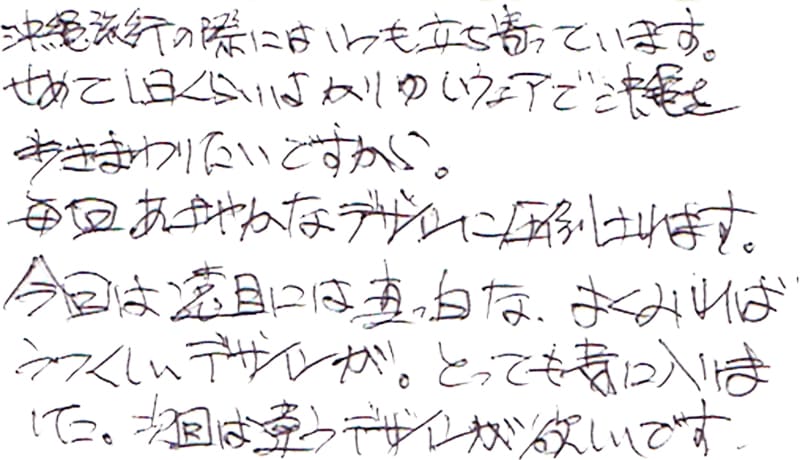 沖縄旅行の際にはいつも立ち寄っています。
せめて1日くらいはかりゆしウェアで沖縄を
歩きまわりたいですから。
毎回あざやかなデザインに圧倒されます。
今回は遠目には真っ白な、よくみれば
うつくしいデザインが。とっても気に入りま
した。次回は違うデザインが欲しいです.